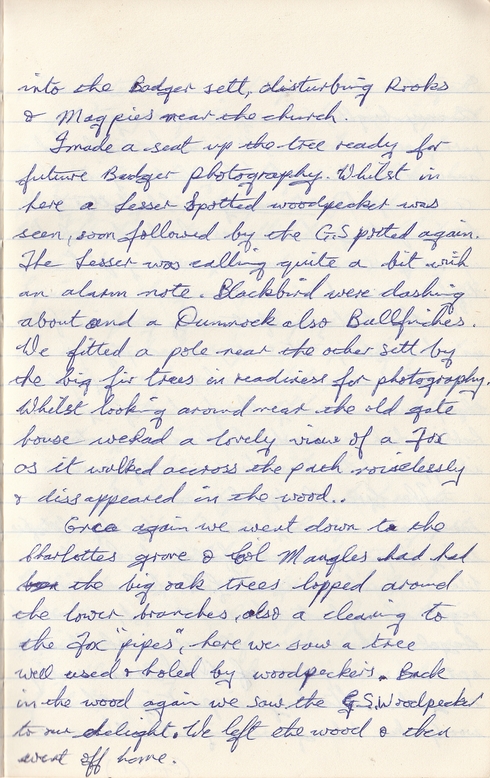 into the Badger sett, disturbing Rooks
& Magpies near the church.
I made a seat up the tree ready for
future Badger photography. Whilst in
here a Lesser Spotted woodpecker was
seen, soon followed by the G.Spotted again.
The Lesser was calling quite a bit with
an alarm note. Blackbird were dashing
about and a Dunnock also Bullfinches.
We fitted a pole near the other sett by
the big fir trees in readiness for photography.
Whilst looking around near the old gate
house we had a lovely view of a Fox
as it walked accross the path noiselessly
& dissappeared in the wood..
Once again we went down to the
Charlottes grove & Col Mangles had had
the big oak trees lopped around
the lower branches, also a clearing to
the Fox "pipes", here we saw a tree
well used & holed by woodpeckers. Back
in the wood again we saw the G.S.Woodpecker
to our delight. We left the wood & then
went off home.